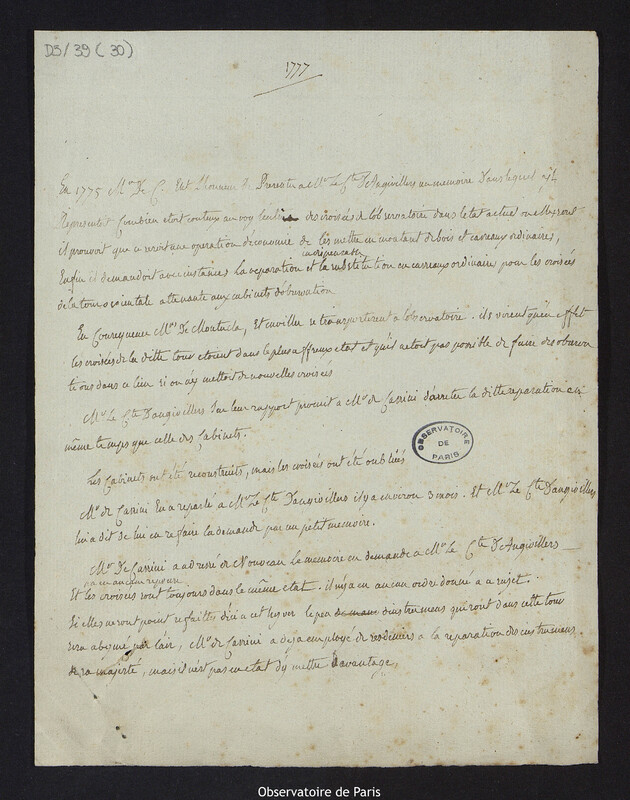 D5/39 (30)
1777
En 1775 Mr De C. Eut L'honneur de Presenter a Mr Le Cte D'Angivillers un memoire Dans lequel
Representoit Combien etoit couteux au roy des croisées de l'observatoire dans letat actuel ou elles sont
il prouvoit que ce seroit une operation d'economie de les mettre en montant de bois et carreaux ordinaires,
indispensable
Enfin il demandoit avec instances la reparation et la substitution en carreaux ordinaires pour les croisées
de la tour orientale attenante aux cabinets d'observation
En Consequence Mrs De Montucla, Et Cuvillier se transporterent a lobservatoire. ils virent qu'en effet
les croisées de la ditte tour etoient dans le plus affreux etat et qu'il n'etoit pas possible de faire des observa
tions dans ce lieu si on n'y mettoit de nouvelles croisées
Mr Le Cte D'angivillers Sur leur rapport promit a Mr de Cassini d'arreter la ditte reparation en
même temps que celle des Cabinets.
Les Cabinets ont été reconstruits, mais les croisées ont été oubliées
OBSERVATOIRE DE PARIS
Mr de Cassini En a reparlé a Mr Le Cte D'angivillers il y a environ 3 mois. Et Mr Le Cte D'angivillers
lui a dit de lui en refaire la demande par un petit memoire.
Mr De Cassini a adressé de Nouveau le memoire en demande a Mr Le Cte D'Angivillers
na eu aucune reponse
Et les croisées sont toujours dans le même etat. il n'y a eu aucun ordre donné a ce sujet.
Si elles ne sont point refaittes dici a cet hyver le peu d'instrumens qui sont dans cette tour
sera abymé par l'air, Mr de Cassini a deja employé de ses deniers a la reparation des instrumens
de sa majesté, mais il n'est pas en etat d'y mettre davantage,
Observatoire de Paris